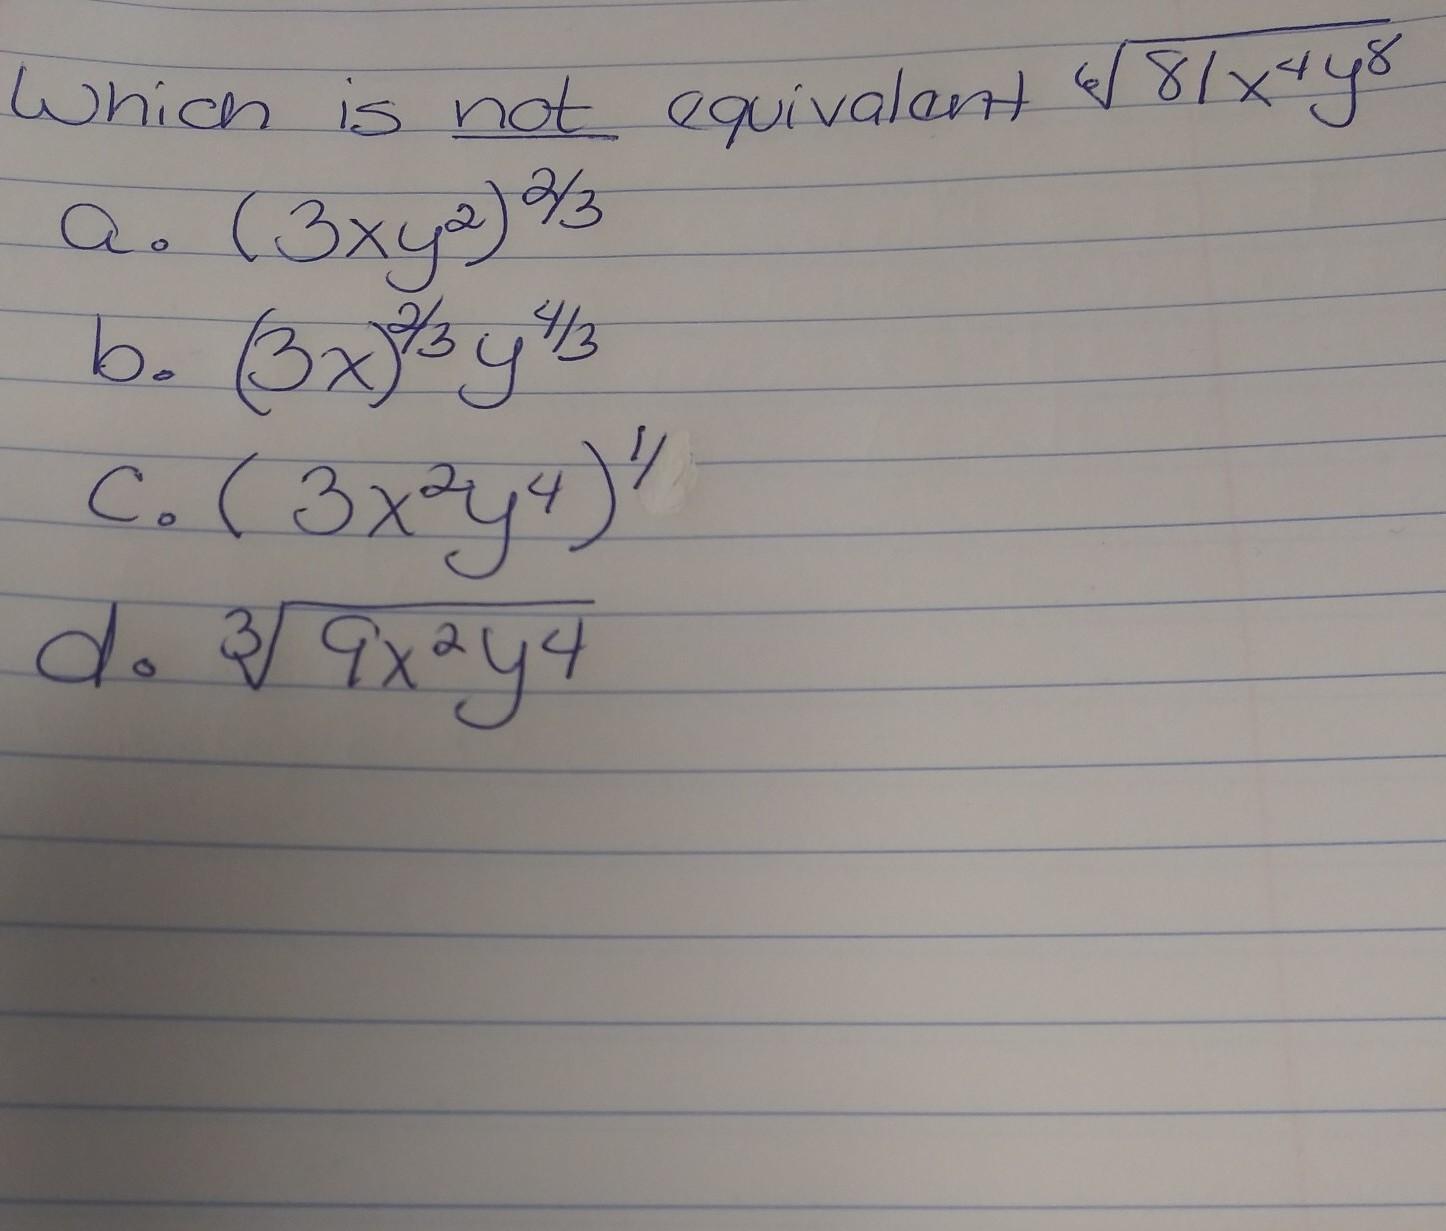 Which is not equivalent ⁶√81x⁴y⁸
a. (3xy²)^2/3
b. (3x)^2/3 y^4/3
c. (3x²y⁴)^1/
d. ³√9x²y⁴